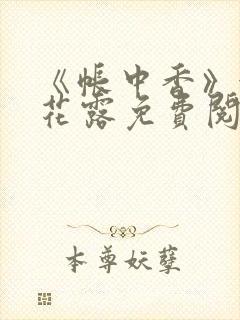 《帐中香》
花露免費閱
本尊妖孽